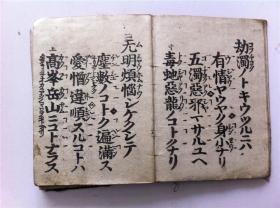 劫濁ノトキウツルニハ
有情ヤウヤク身小ナリ
五濁惡邪マサルユヘ
毒蛇惡龍ノコトクナリ
无明煩惱シケクシテ
塵數ノコトク遍滿ス
愛憎違順スルコトハ
高峯岳山ニコトナラス